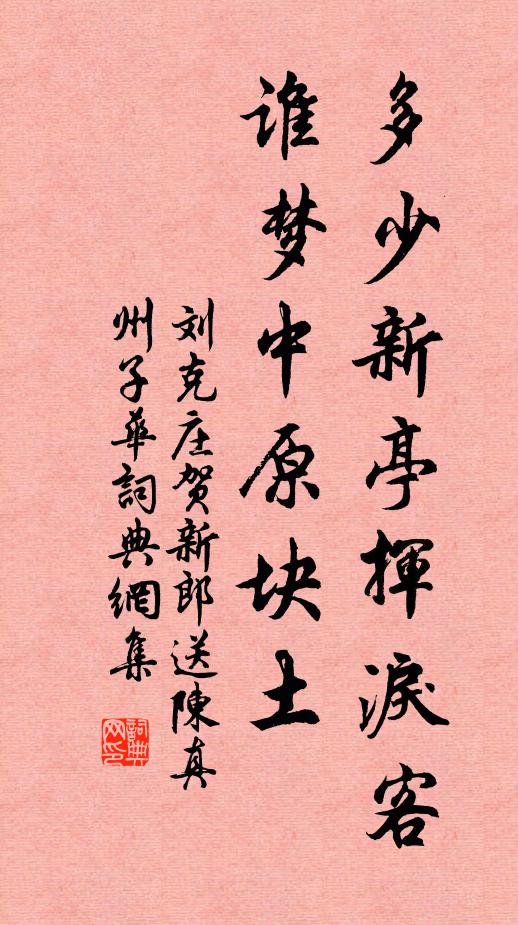 多少新亭揮淚客
谁梦中原块土
刘克庄贺新郎送陳真
州子華詞典網集
詞典网印